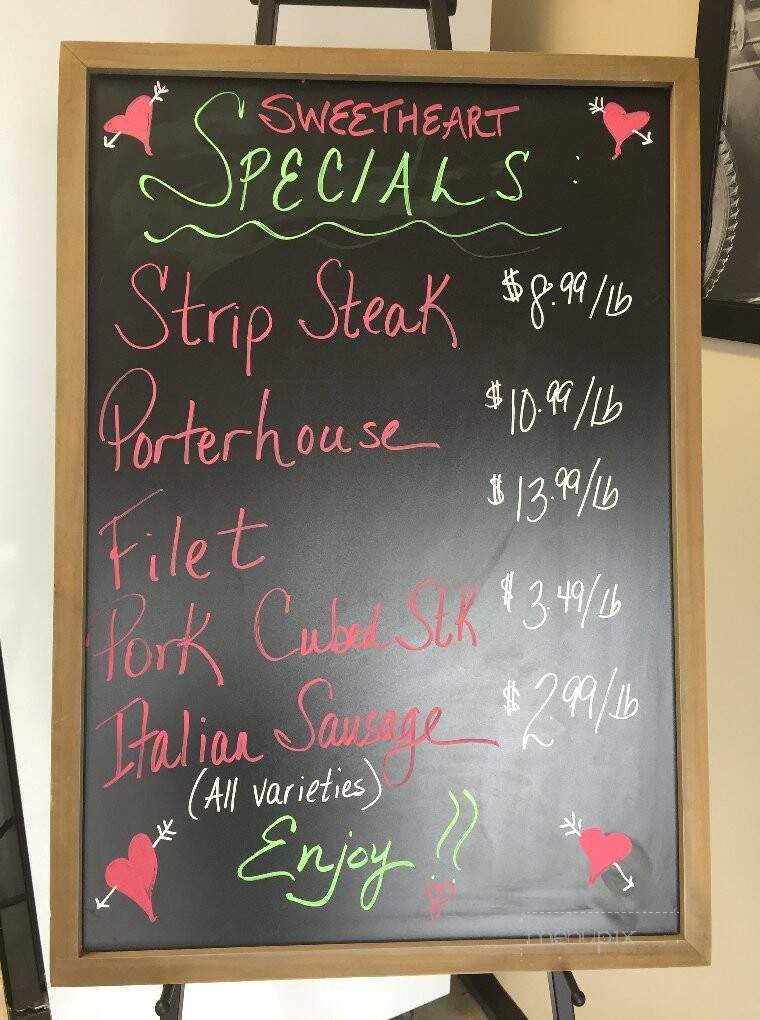 SWEETHEART
SPECIALS:
Strip Steak $8.99/lb
Porterhouse $10.99/lb
Filet $13.99/lb
Pork Cubed Stk $3.49/lb
Italian Sausage $2.99/lb
(All varieties)
Enjoy!!
menupix